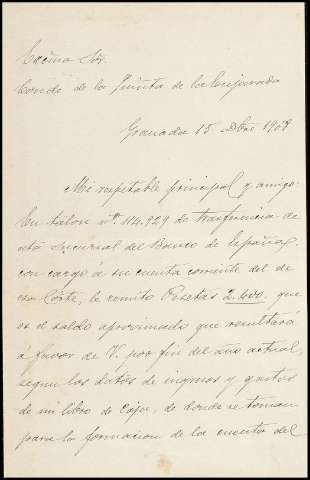 Excmo Sor.
Conde de la Quinta de la Enjarada
Granada 15 Dbre 1908
Mi respetable principal y amigo:
En talon nº 114.929 de trasferencia de
esta Sucursal del Banco de España,
con cargo á su cuenta corriente del de
esa Corte, le remito Pesetas 2.400, que
es el saldo aproximado que resultará
á favor de V. por fin del año actual,
segun los datos de ingresos y gastos
de mi libro de Caja, de donde se toman
para la formacion de la cuenta del